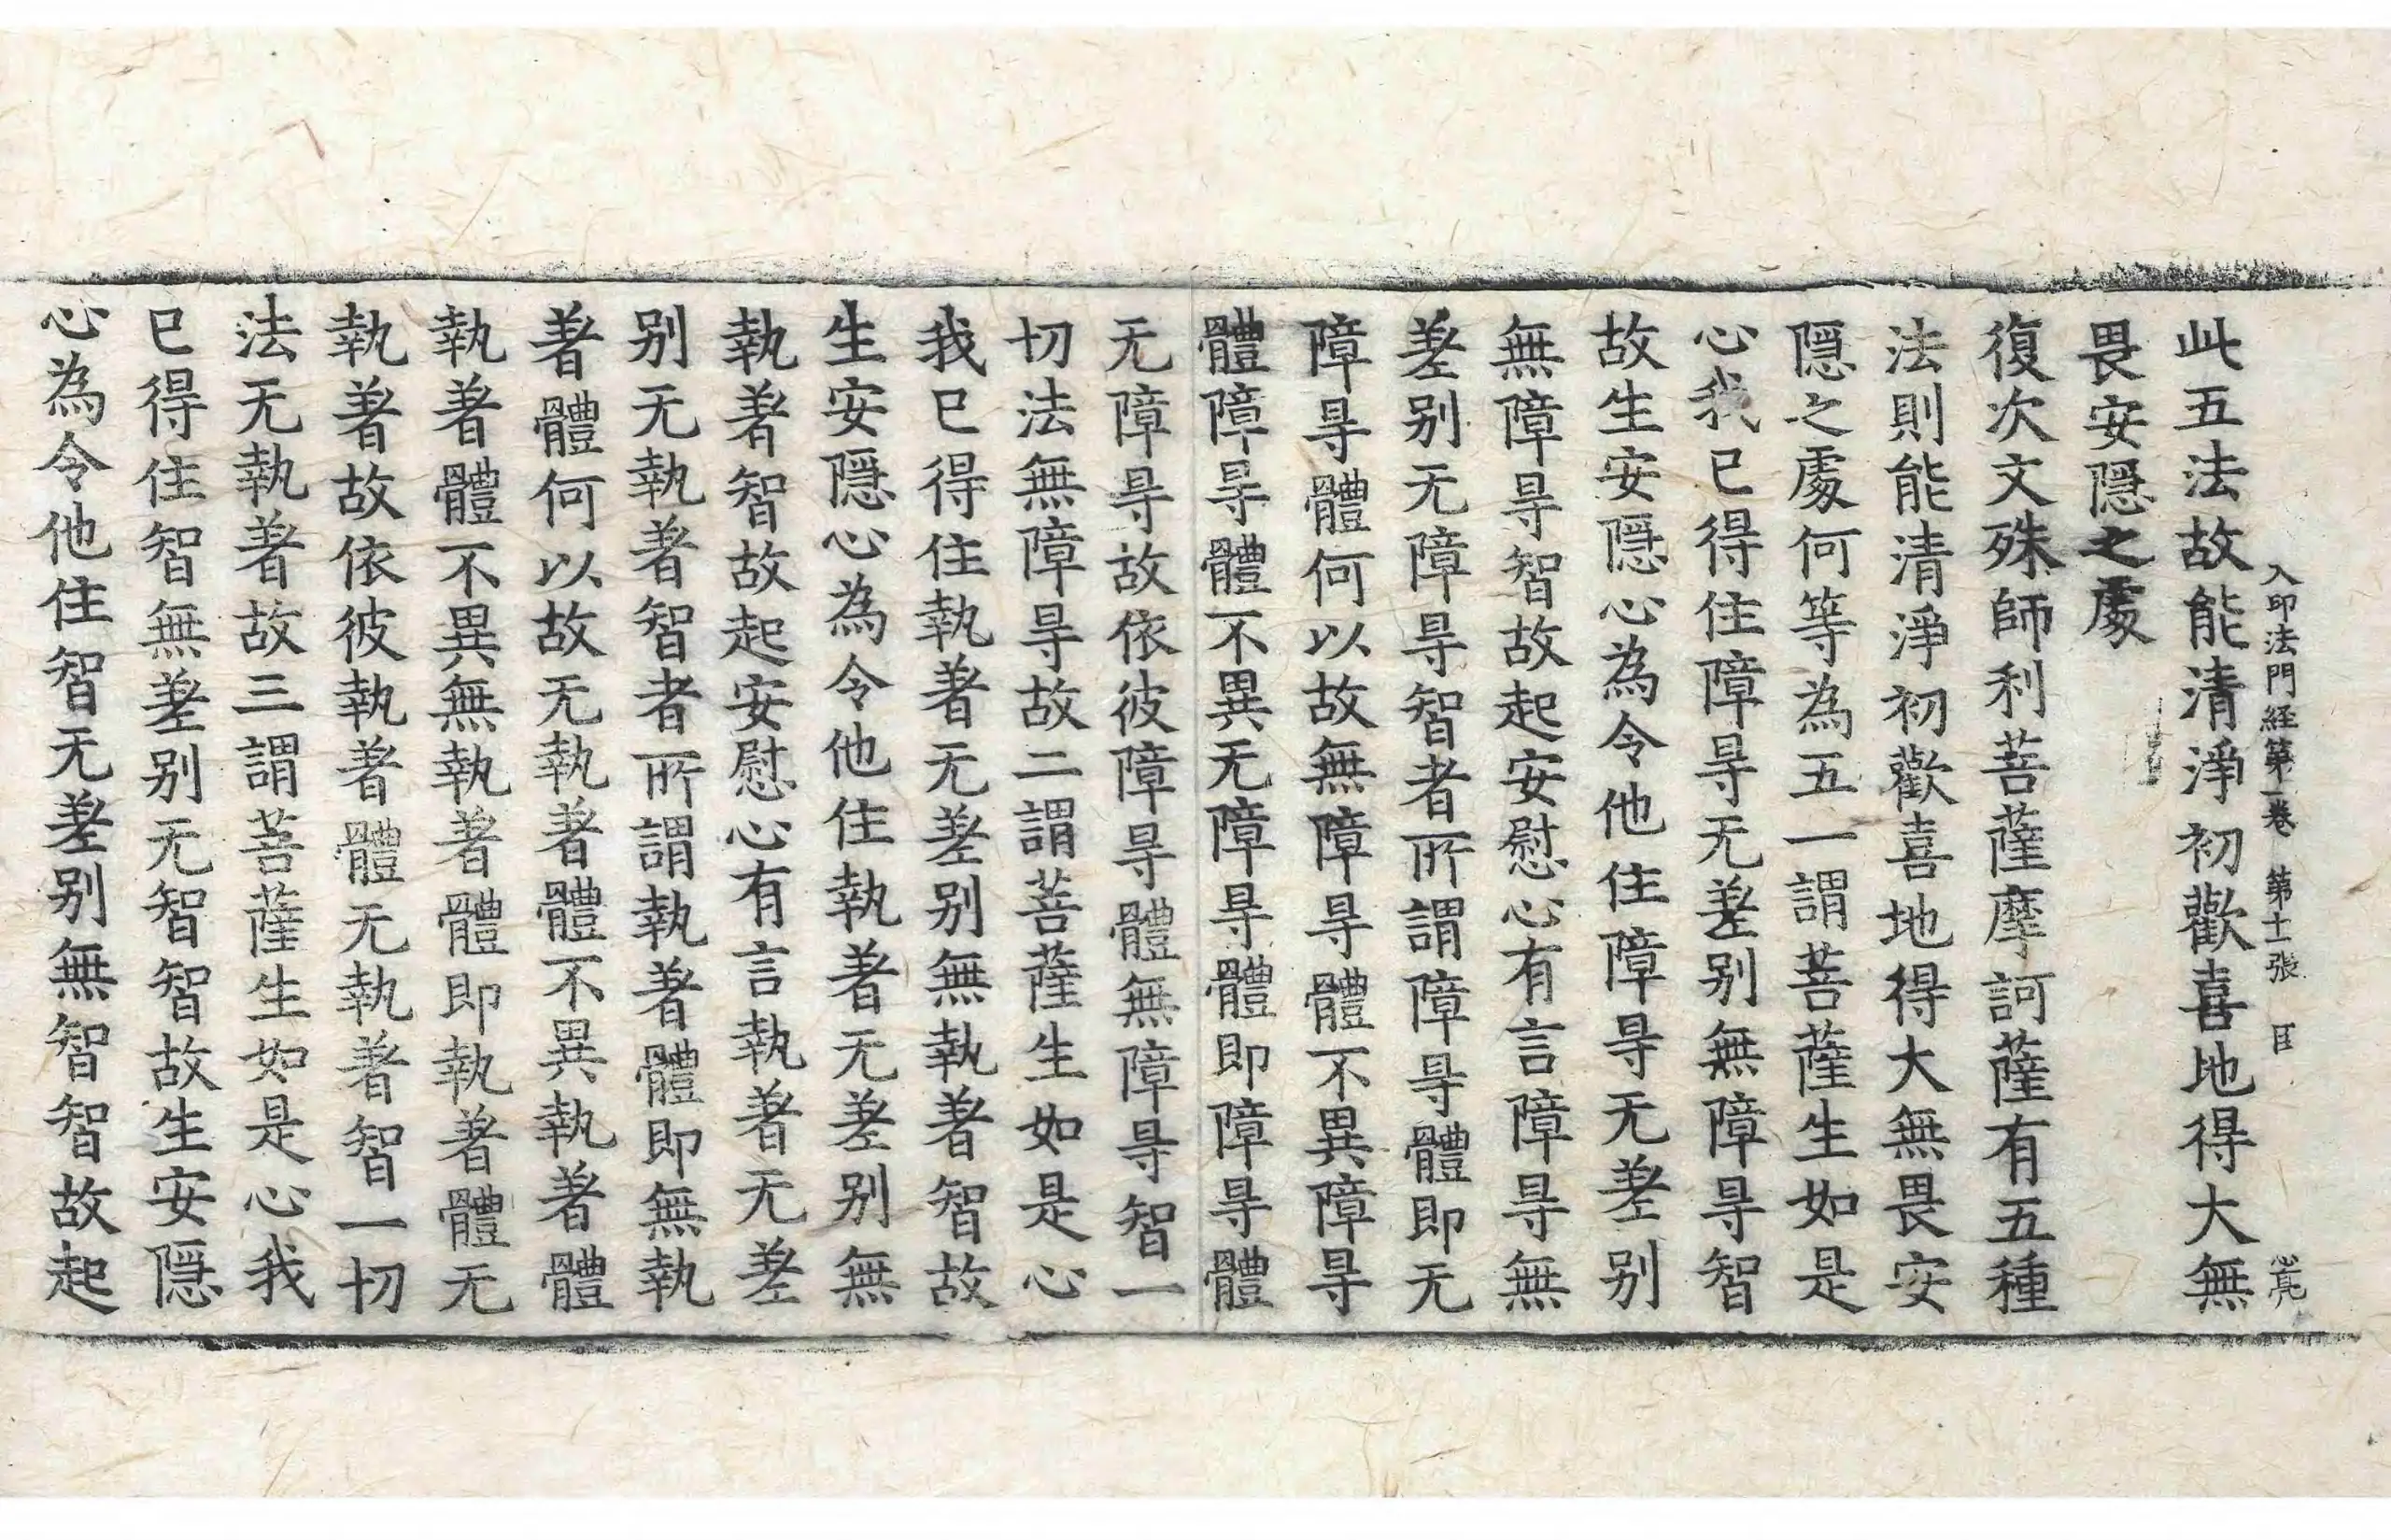 入印法門経第一卷 第十一張 𦣝 心亮
此五法故能清淨初歡喜地得大無
畏安隱之處
復次文殊師利菩薩摩訶薩有五種
法則能清淨初歡喜地得大無畏安
隱之處何等為五一謂菩薩生如是
心我已得住障㝵无差别無障㝵智
故生安隱心為令他住障㝵无差别
無障㝵智故起安慰心有言障㝵無
差别无障㝵智者所謂障㝵體即无
障㝵體何以故無障㝵體不異障㝵
體障㝵體不異无障㝵體即障㝵體
无障㝵故依彼障㝵體無障㝵智一
切法無障㝵故二謂菩薩生如是心
我已得住執著无差别無執著智故
生安隱心為令他住執著无差别無
執著智故起安慰心有言執著无差
别无執著智者所謂執著體即無執
著體何以故无執著體不異執著體
執著體不異無執著體即執著體无
執著故依彼執著體无執著智一切
法无執著故三謂菩薩生如是心我
已得住智無差别无智智故生安隱
心為令他住智无差别無智智故起